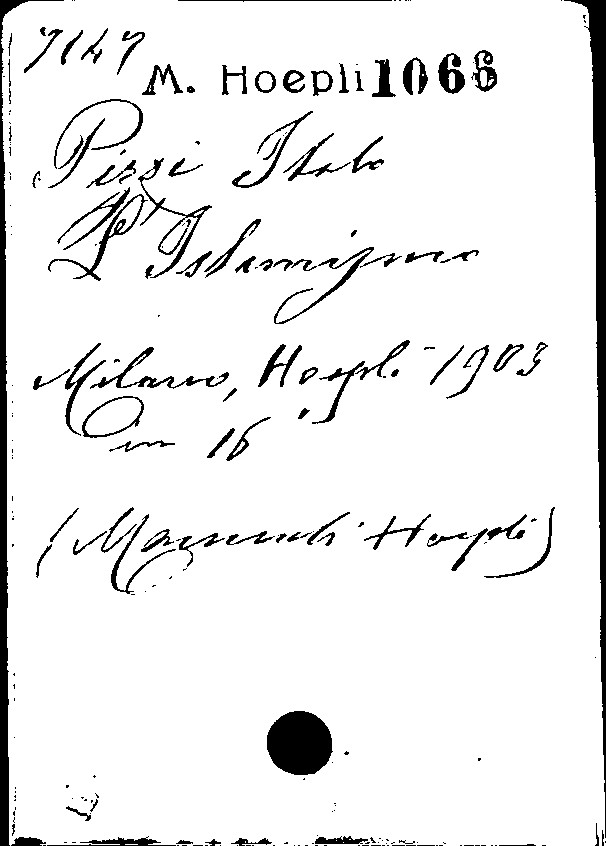 7147
M. Hoepli 1066
Pizzi Italo
L'Islamismo
Milano, Hoepli 1903
in 16
(Manuali Hoepli)